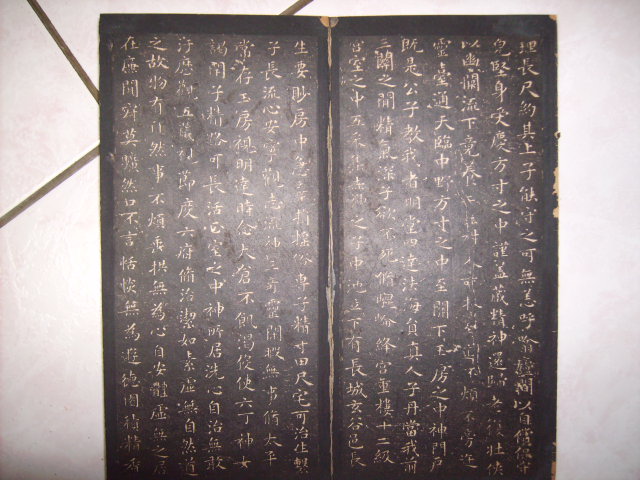 理長尺約其上子能守之可無恙呼噏廬間以自償保守
皃堅身受慶方寸之中謹蓋藏精神還歸老復壯俠
以幽闕流下竟養子玉樹令可杖至道不煩不旁迕
靈臺通天臨中野方寸之中至關下玉房之中神門戶
既是公子教我者明堂四達法海員真人子丹當我前
三關之間精氣深子欲不死脩崐崘絳宮重樓十二級
宮室之中五采集赤神之子中池立下有長城玄谷邑長
生要眇房中急棄捐搖俗專子精寸田尺宅可治生繫
子長流心安寧觀志流神三奇靈閒暇無事脩太平
常存玉房視明達時念大倉不飢渴役使六丁神女
謁閉子精路可長活正室之中神所居洗心自治無敢
汙歷觀五藏視節度六府脩治潔如素虛無自然道
之故物有自然事不煩垂拱無為心自安體虛無之居
在廉間寂莫曠然口不言恬惔無為遊德園積精香